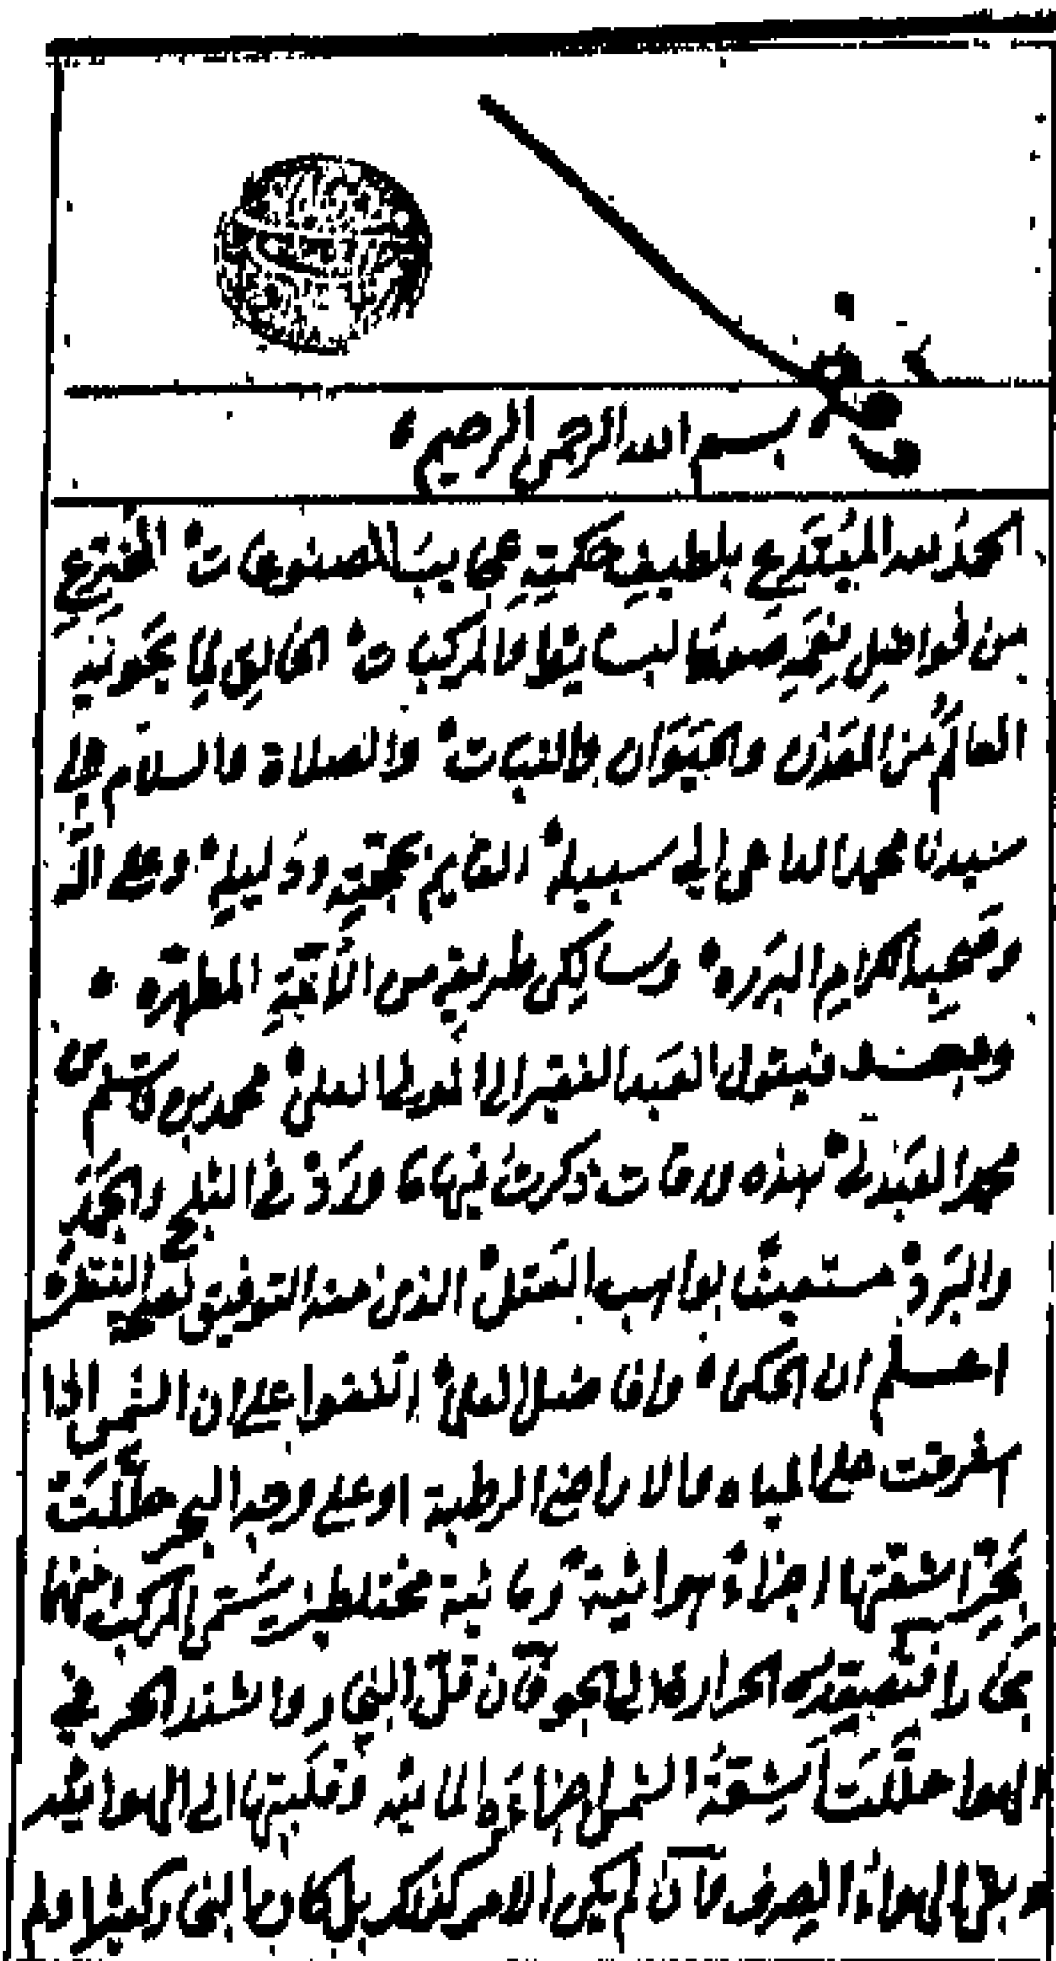 بسم الله الرحمن الرحيم
الحمد لله المبتدع بلطيف حكمته عجايب المصنوعات المخترع
من فواضل نعمه صنعة البسايط والمركبات الخالق لما يحويه
العالم من المعدن والحيوان والنبات والصلاة والسلام على
سيدنا محمد الداعي الى سبيله القايم بحجته ودليله وعلى اله
وصحبه الكرام البرره وسالكي طريقه من الأئمة المطهره
وبعد فيقول العبد الفقير الى المولى العلي محمد بن قاسم بن
محمد العبدلي هذه ورقات ذكرت فيها ما ورد في الثلج والجمد
والبرد مستعينا بواهب العقل الذي منه التوفيق
اعلم ان الحكماء وافاضل العلماء اتفقوا على ان الشمس اذا
اشرقت على المياه والاراضي الرطبة او على وجه البحر حللت
بحر اشعتها اجزاء هوائية ومائية مختلطة يسمى المركب منها
بخارا فتصعده الحرارة الى الجو فان قل البخار واشتد الحر في
الهوا حللت اشعة الشمس اجزاءه المائية وقلبتها الى الهوائية
الهواء الصرف فان لم يكن الامر كذلك بل كان البخار كثيرا ولم